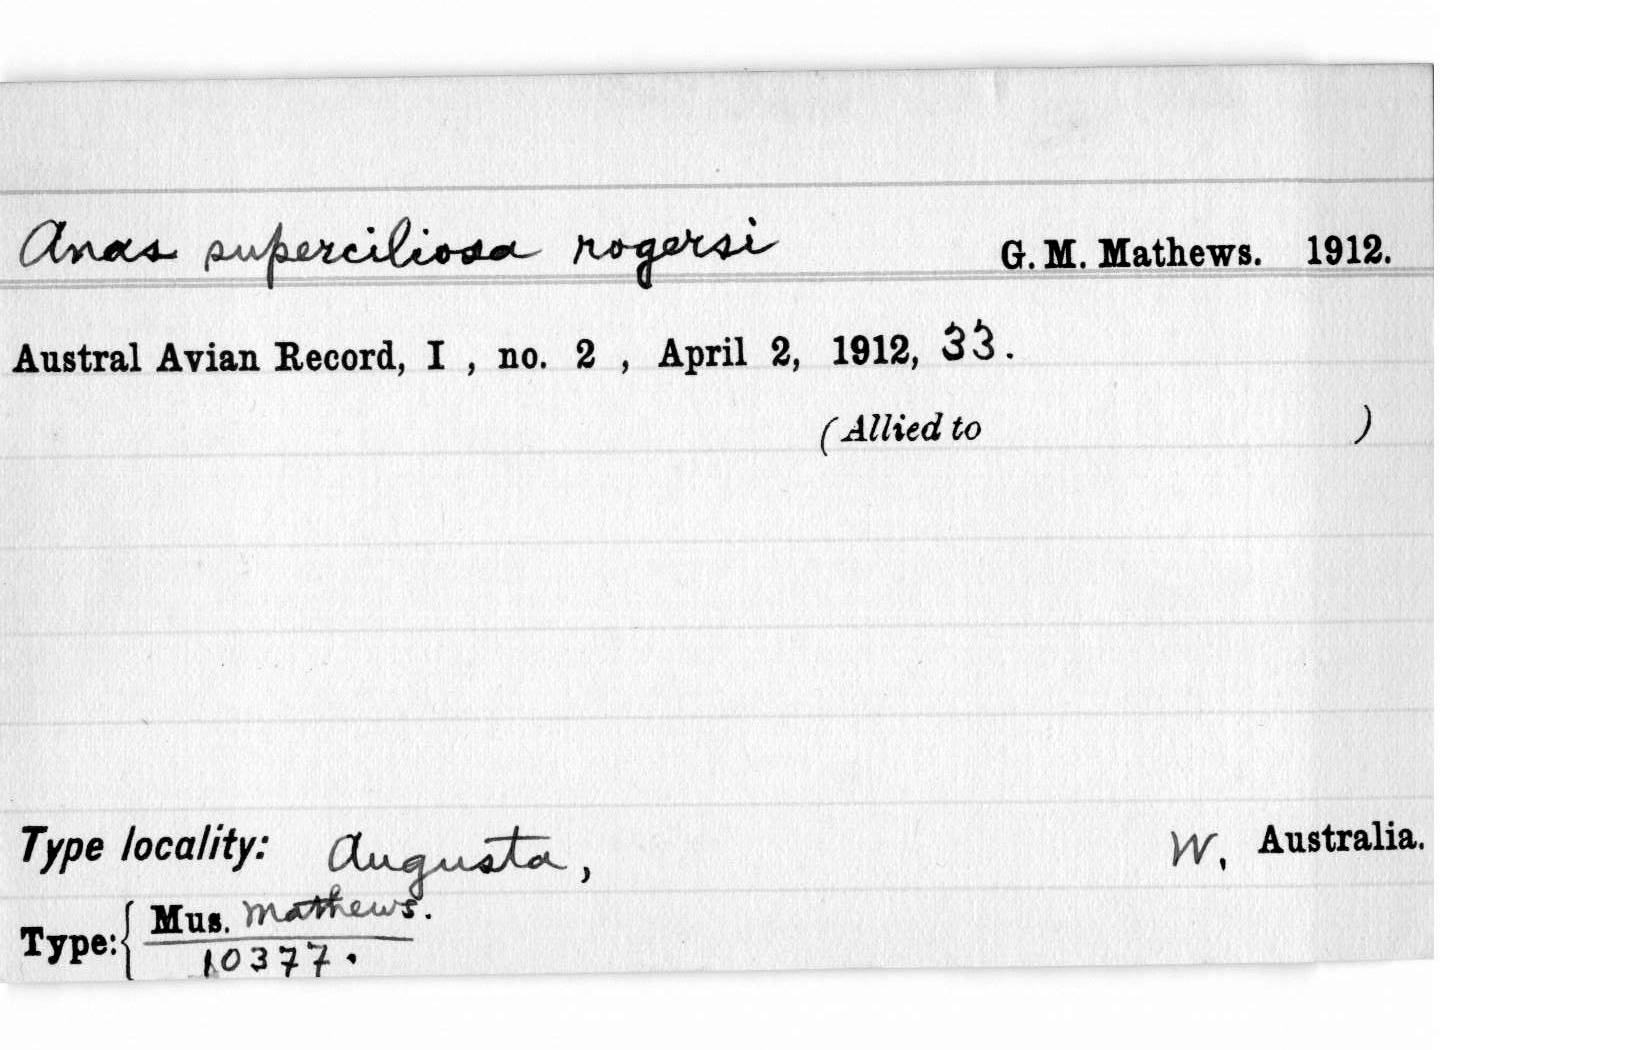 Anas superciliosa rogersi G. M. Mathews. 1912.
Austral Avian Record, I , no. 2 , April 2, 1912, 33.
(Allied to )
Type locality: Augusta, W. Australia.
Type: { Mus. Mathews.
10377.